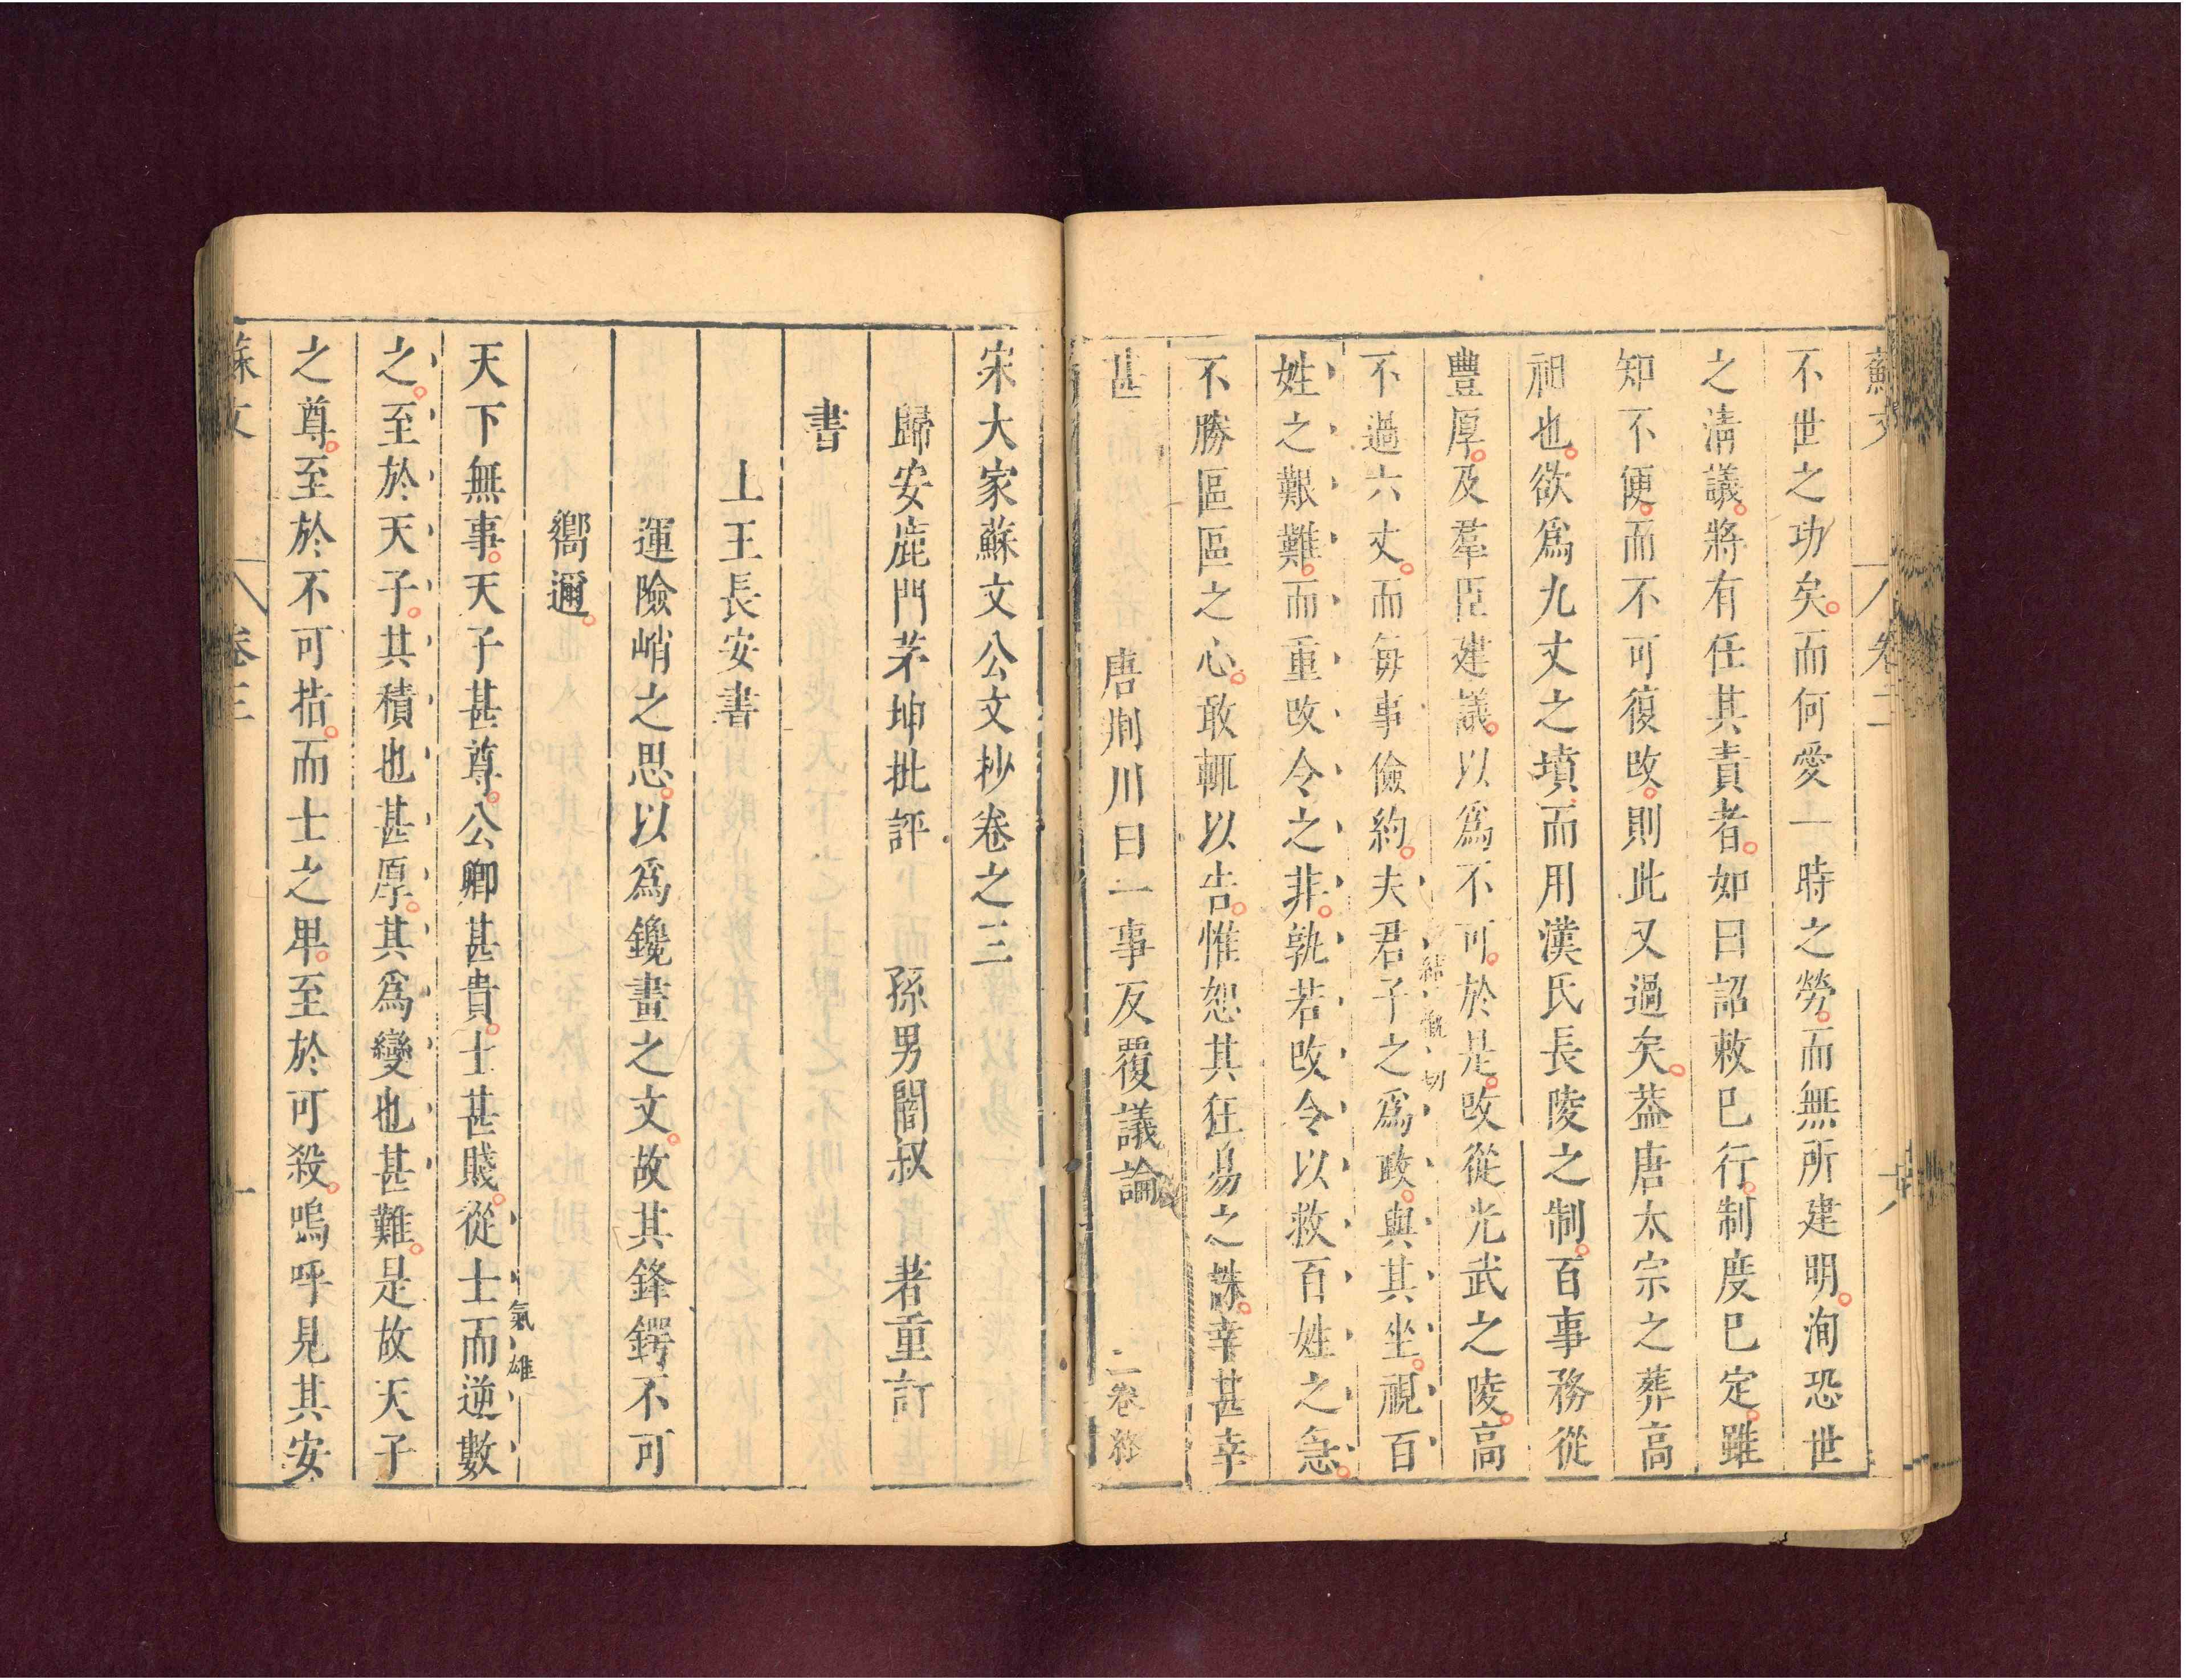 蘇文
卷二
不世之功矣。而何愛一時之勞。而無所建明。洵恐世
之淸議。將有任其責者。如曰詔敕已行。制度已定。雖
知不便。而不可復改。則此又過矣。葢唐太宗之葬高
祖也。欲爲九丈之墳。而用漢氏長陵之制。百事務從
豐厚。及羣臣建議。以爲不可。於是改從光武之陵。高
不過六丈。而每事儉約。夫君子之爲政。與其坐視百
姓之艱難。而重改令之非。孰若改令以救百姓之急。
不勝區區之心。敢輒以告。惟恕其狂易之誅。幸甚幸
甚
唐荆川曰一事反覆議論
二卷終
宋大家蘇文公文抄卷之三
歸安鹿門茅坤批評 孫男闇叔 著重訂
書
上王長安書
運險峭之思。以爲鑱畫之文。故其鋒鍔不可
嚮邇。
天下無事。天子甚尊。公卿甚貴。士甚賤。從士而逆數
氣雄
之。至於天子。其積也甚厚。其爲變也甚難。是故天子
之尊。至於不可㨔。而士之卑。至於可殺。嗚呼見其安
蘇文
卷三
一